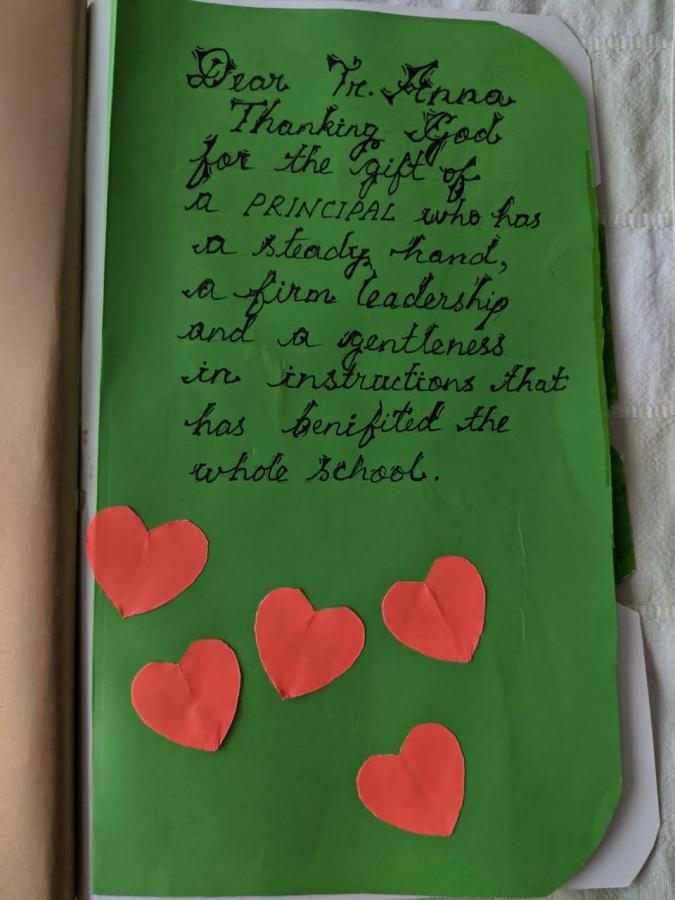 Dear Tr. Anna
Thanking God
for the gift of
a PRINCIPAL who has
a steady hand,
a firm leadership
and a gentleness
in instructions that
has benifited the
whole school.